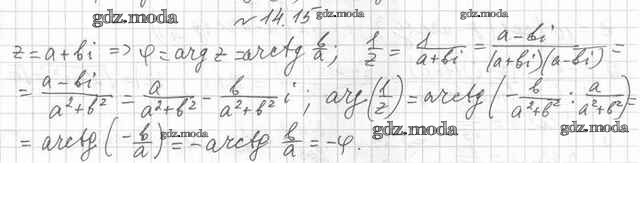 gdz.moda
№ 14.15 gdz.moda gdz.moda
z = a + bi ⇒ φ = arg z = arctg b/a; 1/z = 1/(a+bi) = (a-bi)/((a+bi)(a-bi)) =
= (a-bi)/(a²+b²) = a/(a²+b²) - b/(a²+b²) i; arg(1/z) = arctg(-b/(a²+b²) : a/(a²+b²)) =
= arctg(-b/a) = -arctg b/a = -φ.
gdz.moda gdz.moda gdz.moda gdz.moda